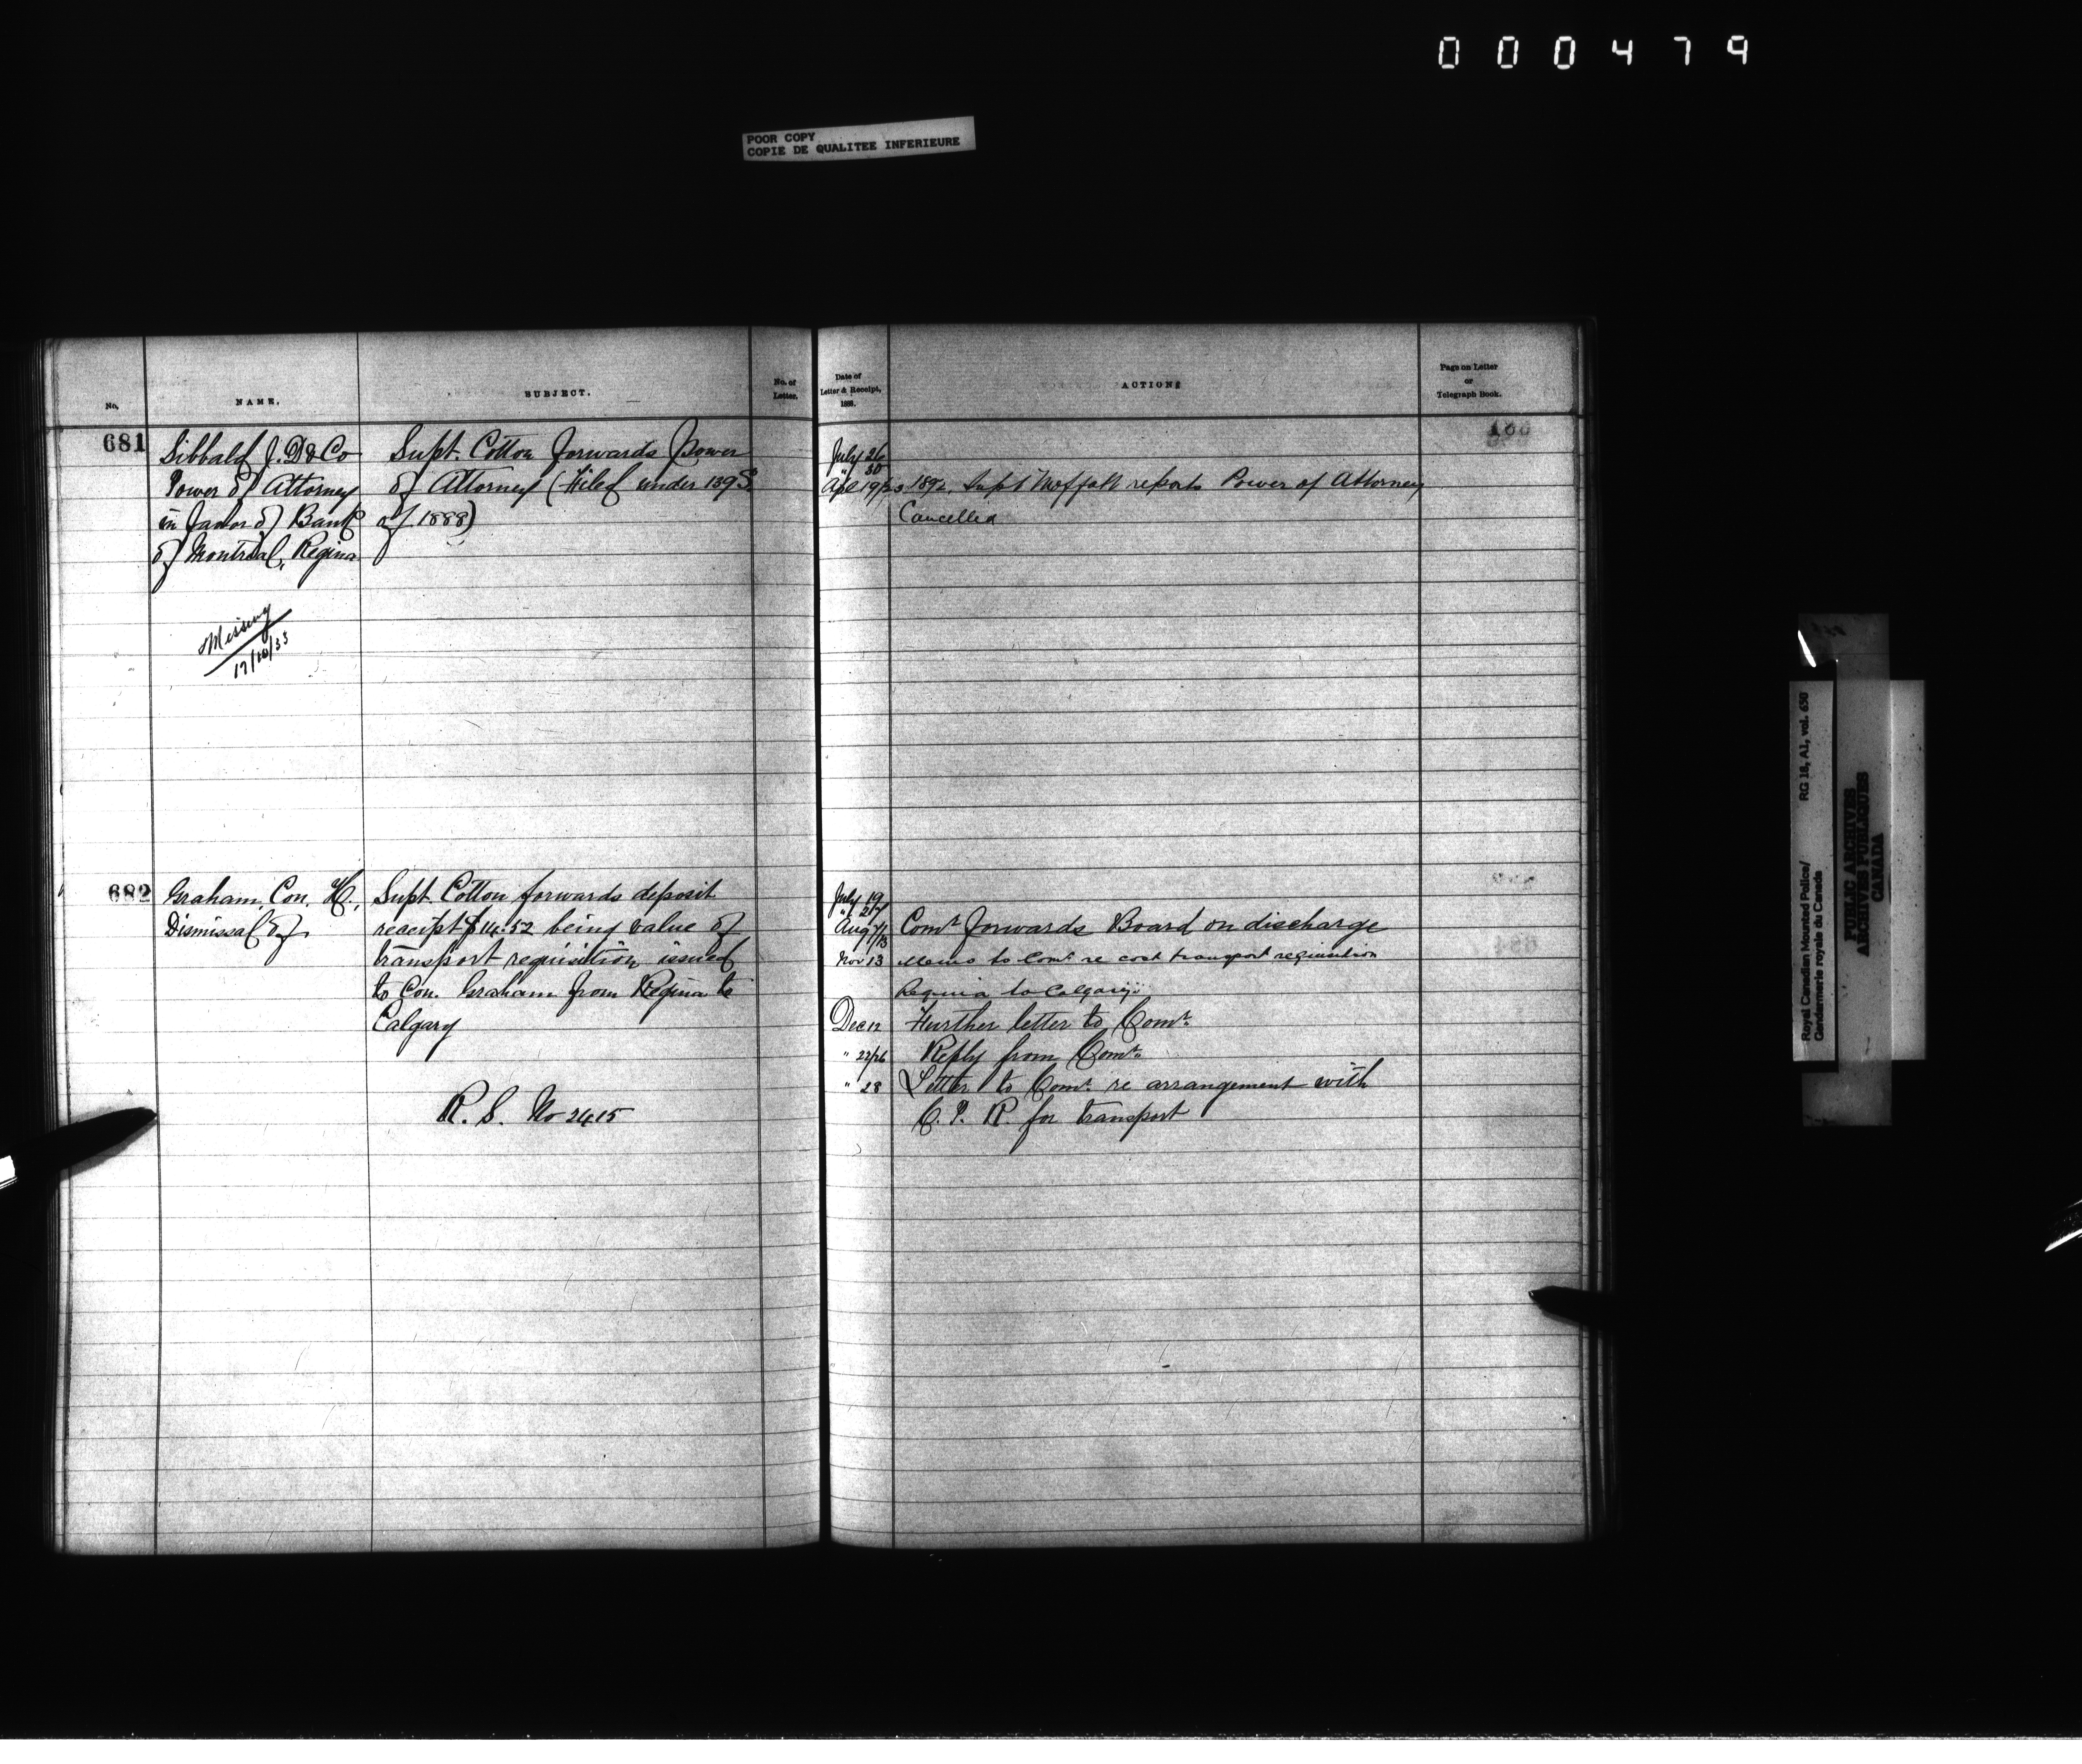 000479
POOR COPY
COPIE DE QUALITEE INFERIEURE
No.
NAME.
SUBJECT.
No. of
Letter.
Date of
Letter & Receipt,
1888.
ACTION
Page on Letter
or
Telegraph Book.
681
Sibbald J. D & Co
Power of Attorney
in favor of Bank
of Montreal, Regina
Missing
17/10/33
Supt. Cotton forwards Power
of Attorney (Filed under 139
of 1888)
July 26
" 30
Apl 19/23 1892. Supt Moffatt reports Power of Attorney
Cancelled
682
Graham, Con. H.,
Dismissal of
Supt Cotton forwards deposit
receipt $14.52 being value of
transport requisition issued
to Con. Graham from Regina to
Calgary
R. S. No 2415
July 19
" 27
Aug 7/13 Comr forwards Board on discharge
Nov 13 Memo to Comr re cost transport requisition
Regina to Calgary
Dec 12 Further letter to Comr.
" 22/26 Reply from Comr.
" 28 Letter to Comr. re arrangement with
C. P. R. for transport
Royal Canadian Mounted Police/
Gendarmerie royale du Canada
RG 18, A1, vol. 650
PUBLIC ARCHIVES
ARCHIVES PUBLIQUES
CANADA